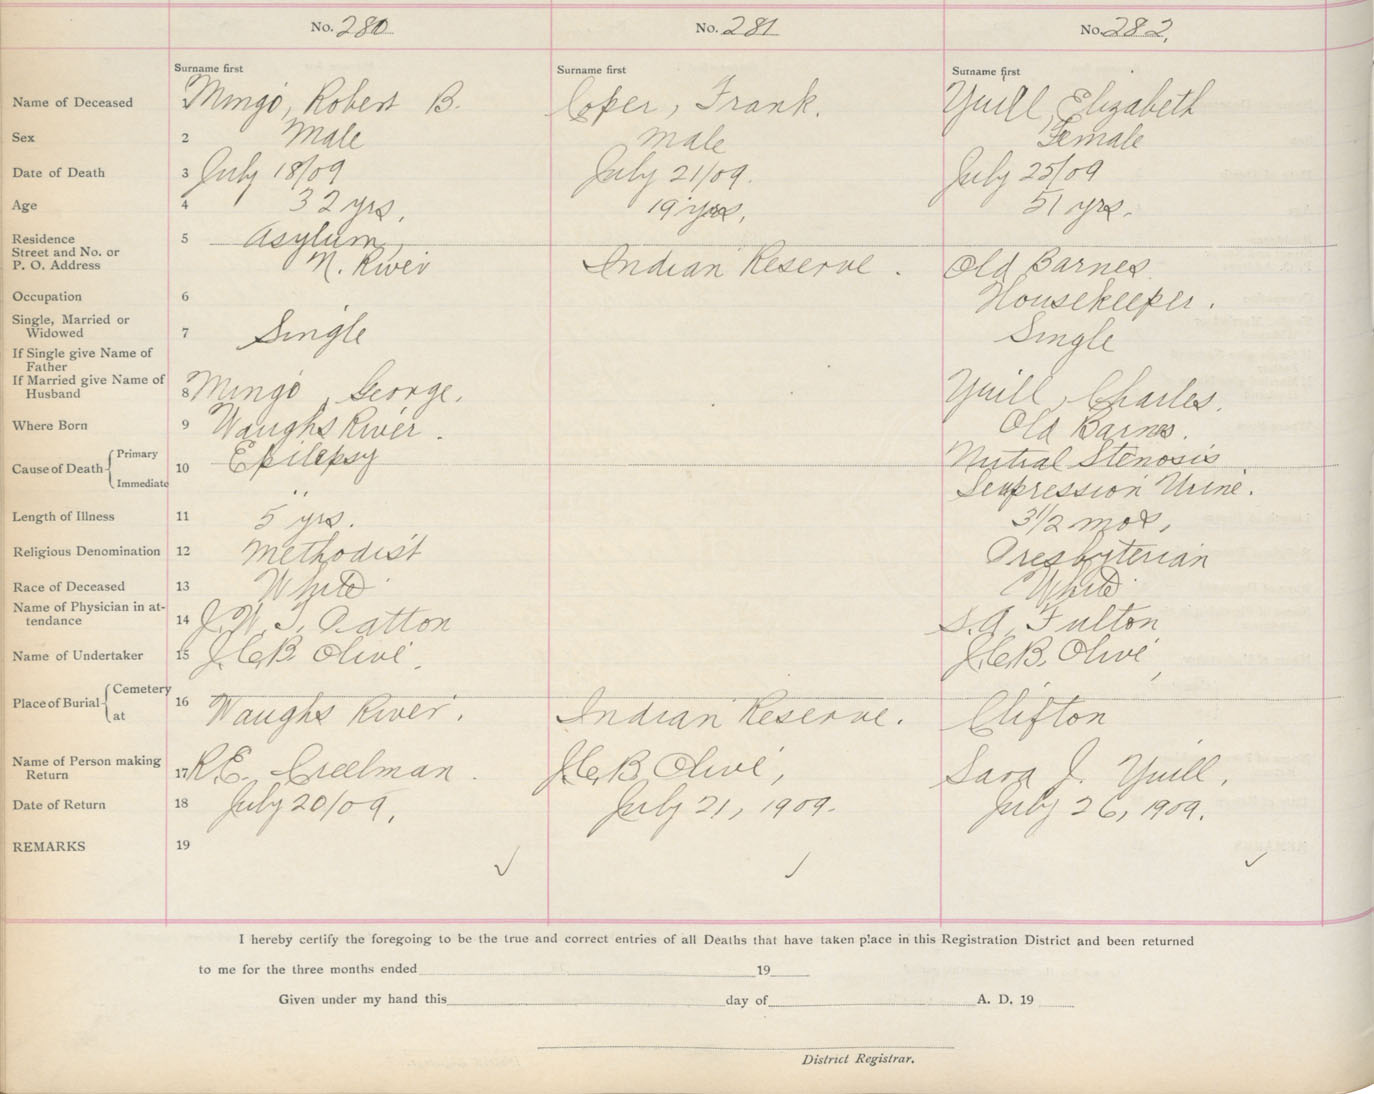 No. 280
No. 281
No. 282.
Surname first
Surname first
Surname first
Name of Deceased 1 Mingo, Robert B. Coper, Frank. Yuill, Elizabeth
Sex 2 Male Male Female
Date of Death 3 July 18/09 July 21/09. July 25/09
Age 4 32 yrs. 19 yrs. 51 yrs.
Residence Street and No. or P. O. Address 5 Asylum,
N. River Indian Reserve. Old Barnes
Occupation 6 Housekeeper.
Single, Married or
Widowed 7 Single Single
If Single give Name of
Father
If Married give Name of
Husband 8 Mingo, George. Yuill, Charles.
Where Born 9 Waughs River. Old Barns.
Cause of Death Primary 10 Epilepsy Mitral Stenosis
Immediate " Suppression Urine.
Length of Illness 11 5 yrs. 3 1/2 mos,
Religious Denomination 12 Methodist Presbyterian
Race of Deceased 13 White White
Name of Physician in at-
tendance 14 J. W. T. Patton S. A. Fulton
Name of Undertaker 15 J. C. B. Olive. J. C. B. Olive,
Place of Burial Cemetery
at 16 Waughs River. Indian Reserve. Clifton
Name of Person making
Return 17 R. E. Creelman. J. C. B. Olive, Sara J. Yuill.
Date of Return 18 July 20/09, July 21, 1909. July 26, 1909.
REMARKS 19
I hereby certify the foregoing to be the true and correct entries of all Deaths that have taken place in this Registration District and been returned
to me for the three months ended 19
Given under my hand this day of A. D. 19
District Registrar.